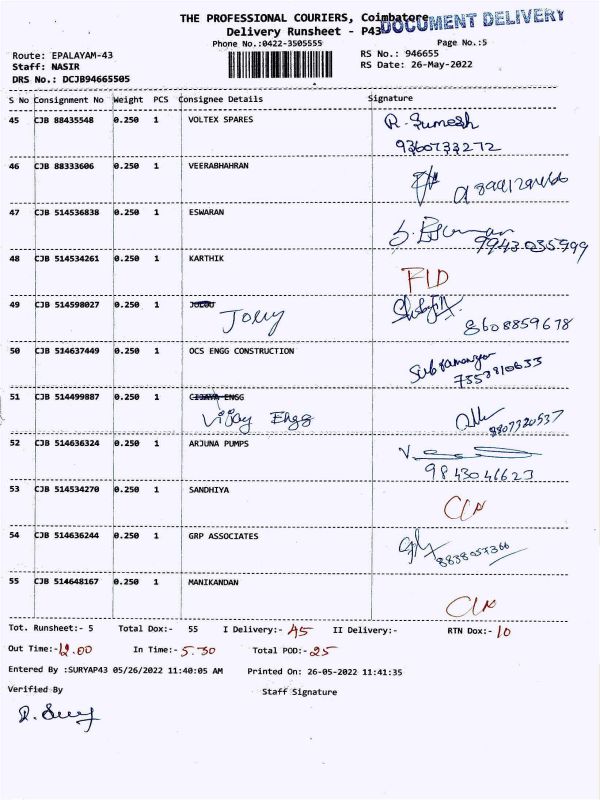 THE PROFESSIONAL COURIERS, Coimbatore
DOCUMENT DELIVERY
Delivery Runsheet - P43
Phone No.:0422-3505555
Page No.:5
Route: EPALAYAM-43
RS No.: 946655
Staff: NASIR
RS Date: 26-May-2022
DRS No.: DCJB94665505
S No Consignment No Weight PCS Consignee Details Signature
45 CJB 88435548 0.250 1 VOLTEX SPARES R. Sumesh
9360733272
46 CJB 88333606 0.250 1 VEERABHAHRAN
47 CJB 514536838 0.250 1 ESWARAN
9943035999
48 CJB 514534261 0.250 1 KARTHIK
49 CJB 514598027 0.250 1
8608859678
50 CJB 514637449 0.250 1 OCS ENGG CONSTRUCTION
51 CJB 514499887 0.250 1 ENGG
Vijay Engg 8807320537
52 CJB 514636324 0.250 1 ARJUNA PUMPS
9843046623
53 CJB 514534270 0.250 1 SANDHIYA
54 CJB 514636244 0.250 1 GRP ASSOCIATES
8838057366
55 CJB 514648167 0.250 1 MANIKANDAN
Tot. Runsheet:- 5 Total Dox:- 55 I Delivery:- 45 II Delivery:- RTN Dox:- 10
Out Time:- 12.00 In Time:- 5.30 Total POD:- 25
Entered By :SURYAP43 05/26/2022 11:40:05 AM Printed On: 26-05-2022 11:41:35
Verified By Staff Signature